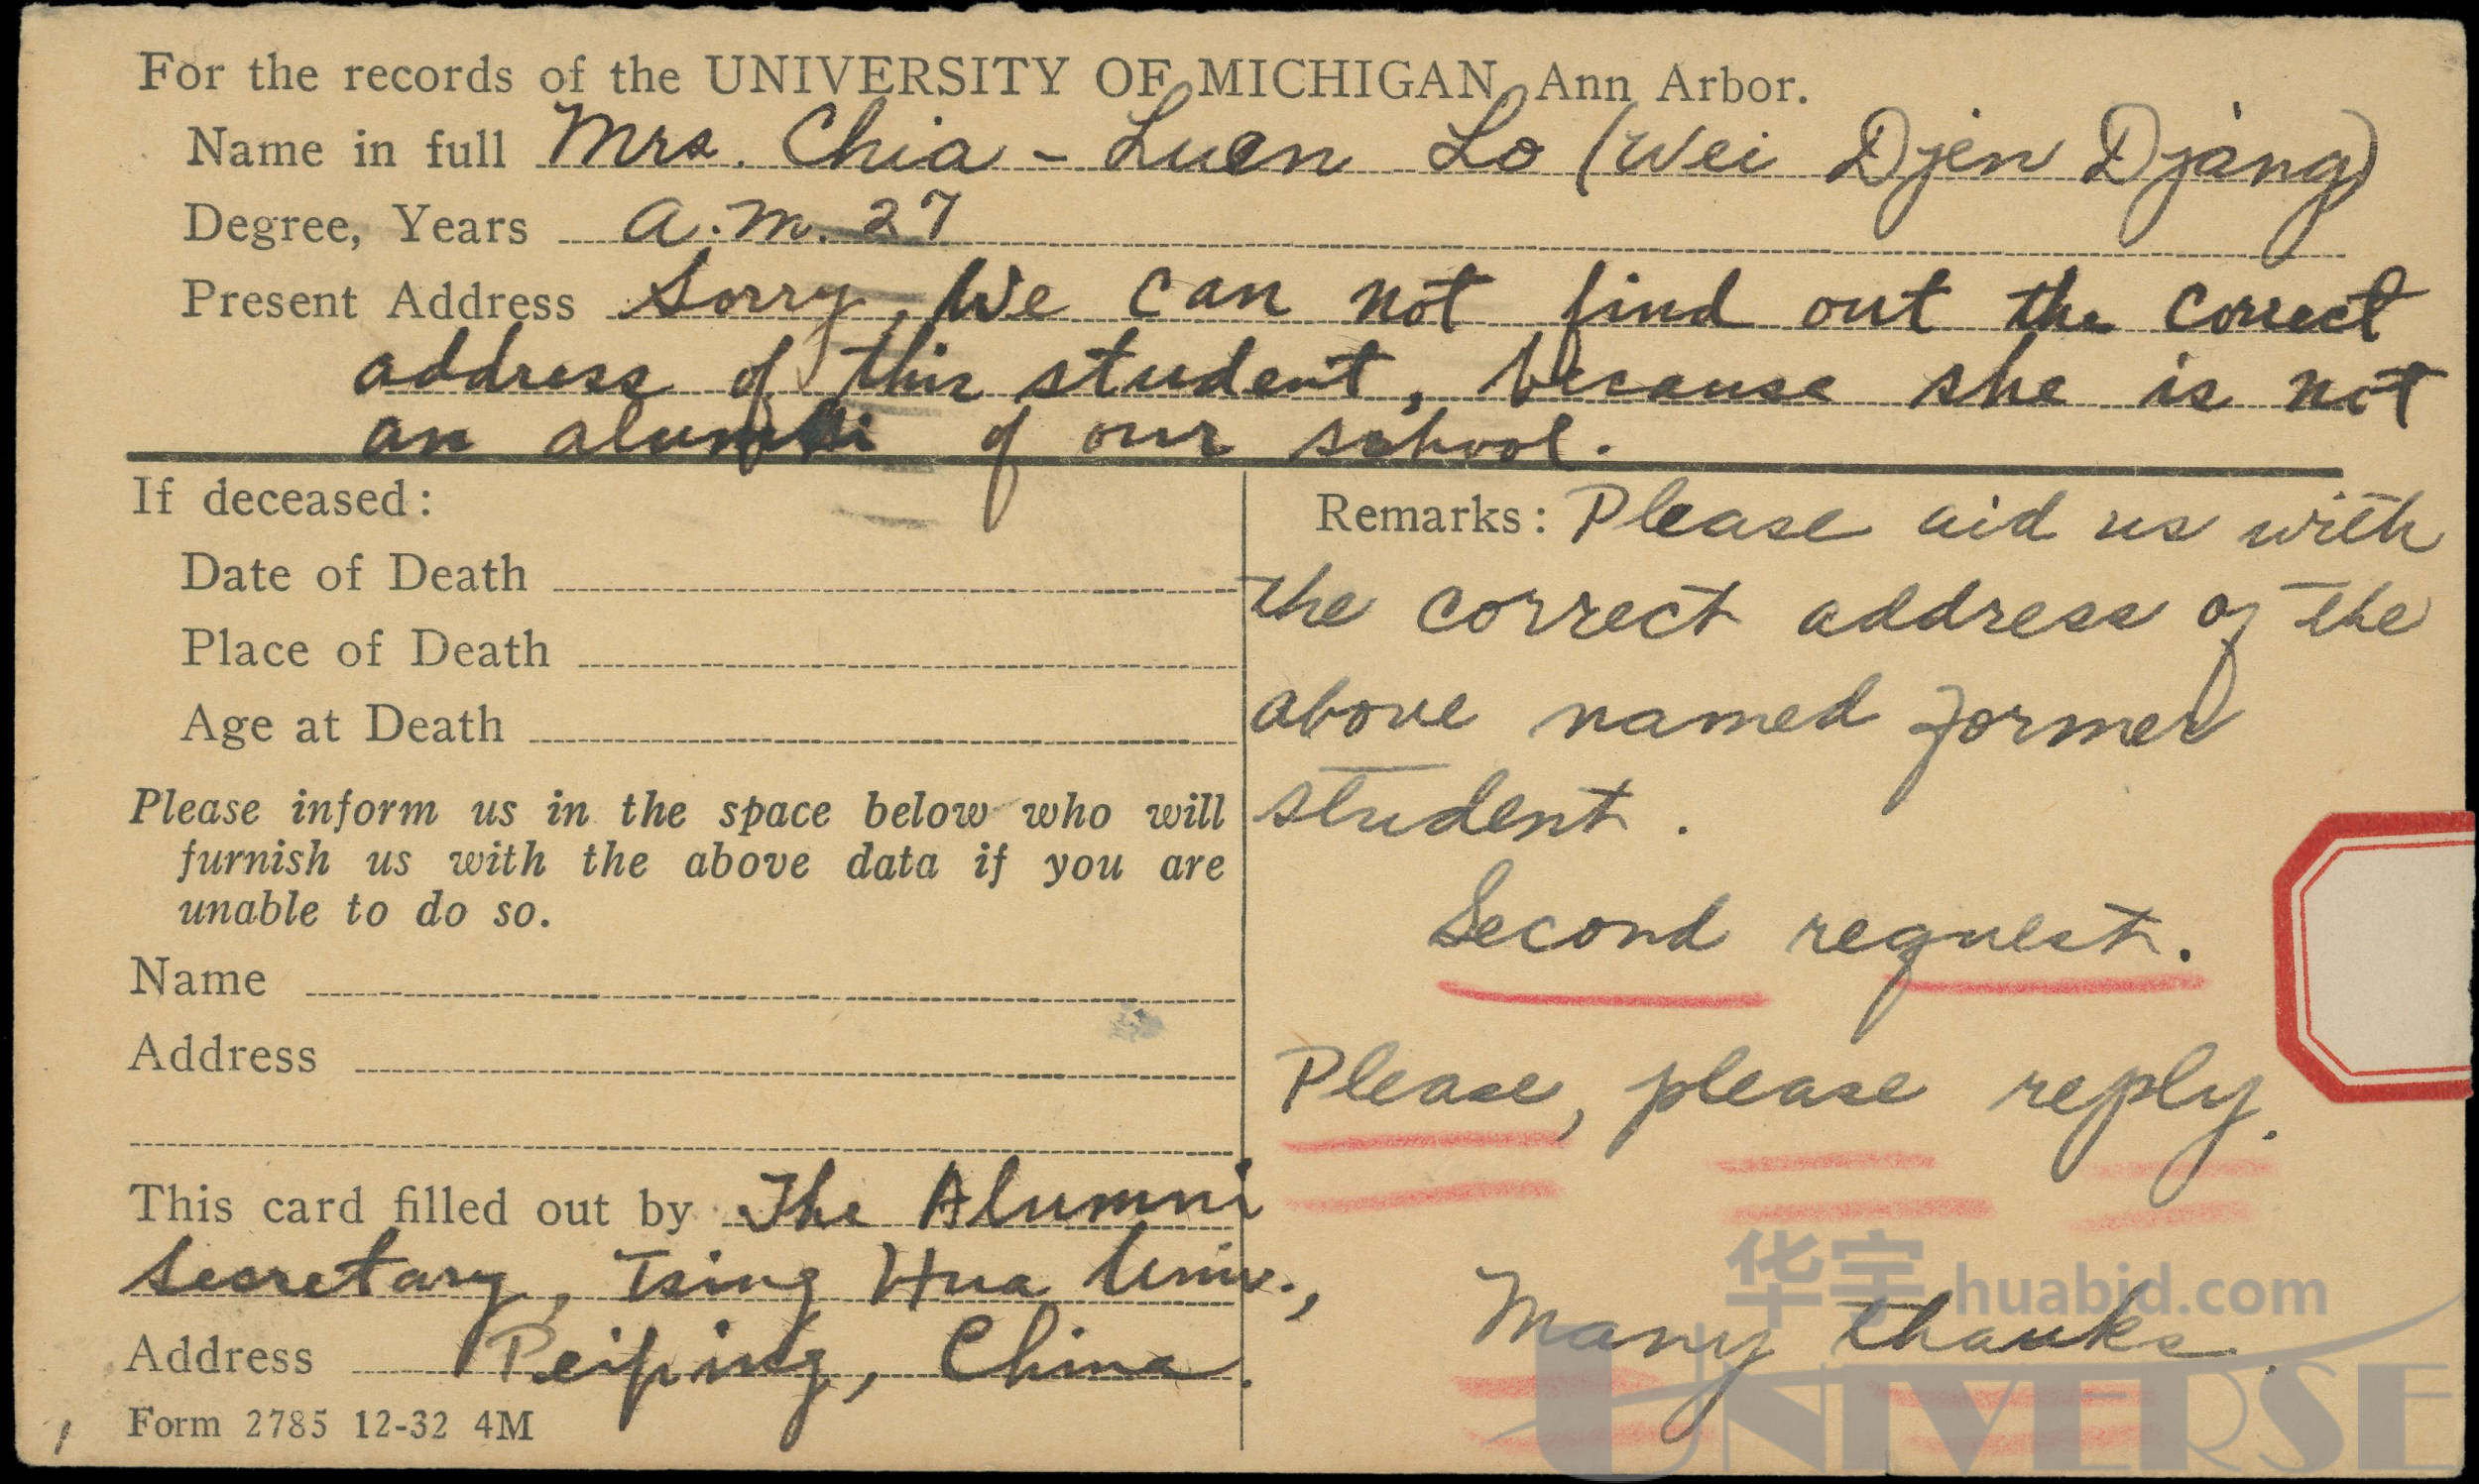 For the records of the UNIVERSITY OF MICHIGAN, Ann Arbor.
Name in full Mrs. Chia-Luen Lo (Wei Djen Djang)
Degree, Years A.M. 27
Present Address Sorry, We can not find out the correct
address of this student, because she is not
an alumni of our school.
If deceased:
Date of Death
Place of Death
Age at Death
Please inform us in the space below who will
furnish us with the above data if you are
unable to do so.
Name
Address
This card filled out by The Alumni
Secretary, Tsing Hua Univ.,
Address Peiping, China.
Form 2785 12-32 4M
Remarks: Please aid us with
the correct address of the
above named former
student.
Second request.
Please, please reply.
Many thanks.
华宇 huabid.com
UNIVERSE